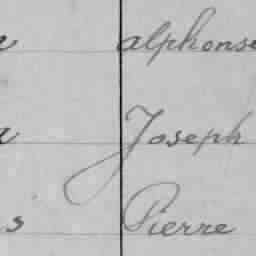 alphonse
Joseph
s Pierre